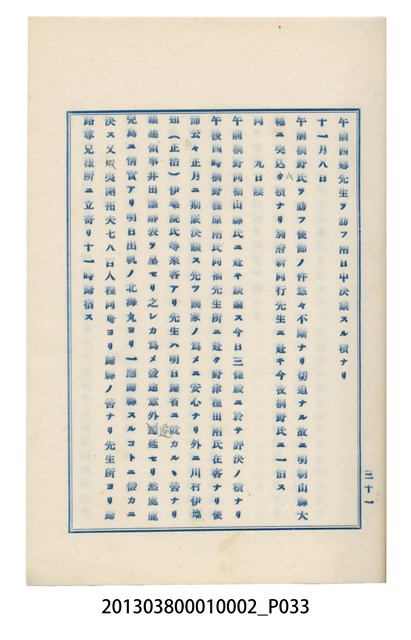 午前西鄕先生ヲ訪フ兩日中決議スル積ナリ
十一月八日
午前桐野氏ヲ訪フ使節ノ件怠々不順ナリ切迫ナル故ニ明朝山縣大
輔ニ突込ム積ナリ別府新同行先生ニ赴キ今夜桐野氏ニ一泊ス
同　九日陰
午前桐野同福山縣氏ニ赴キ談論ス今日三條殿ニ於テ評決ノ積ナリ
午後四時桐野篠原兩氏同福先生所ニ赴ク野津種田兩氏在客ナリ使
節云々正月ニ期限決議ス先ツ國家ノ爲メニ安心ナリ外ニ川村伊地
知(正治)伊集院氏等來客アリ先生ハ明日歸省ニ就カルヽ筈ナリ
縮連領事井田讓辭表ヲ呈セリ之レカ爲メ發途意外遷延セリ然處鹿
兒島ニ情實アリ明日出帆ノ北海丸ヨリ一應歸縣スルコトニ俄カニ
決ス又樺夷開拓夫七八百人程同舟ヨリ歸縣ノ筈ナリ先生所ヨリ歸
路尊兄樣所ニ立寄リ十一時歸宿ス
三十一
201303800010002_P033